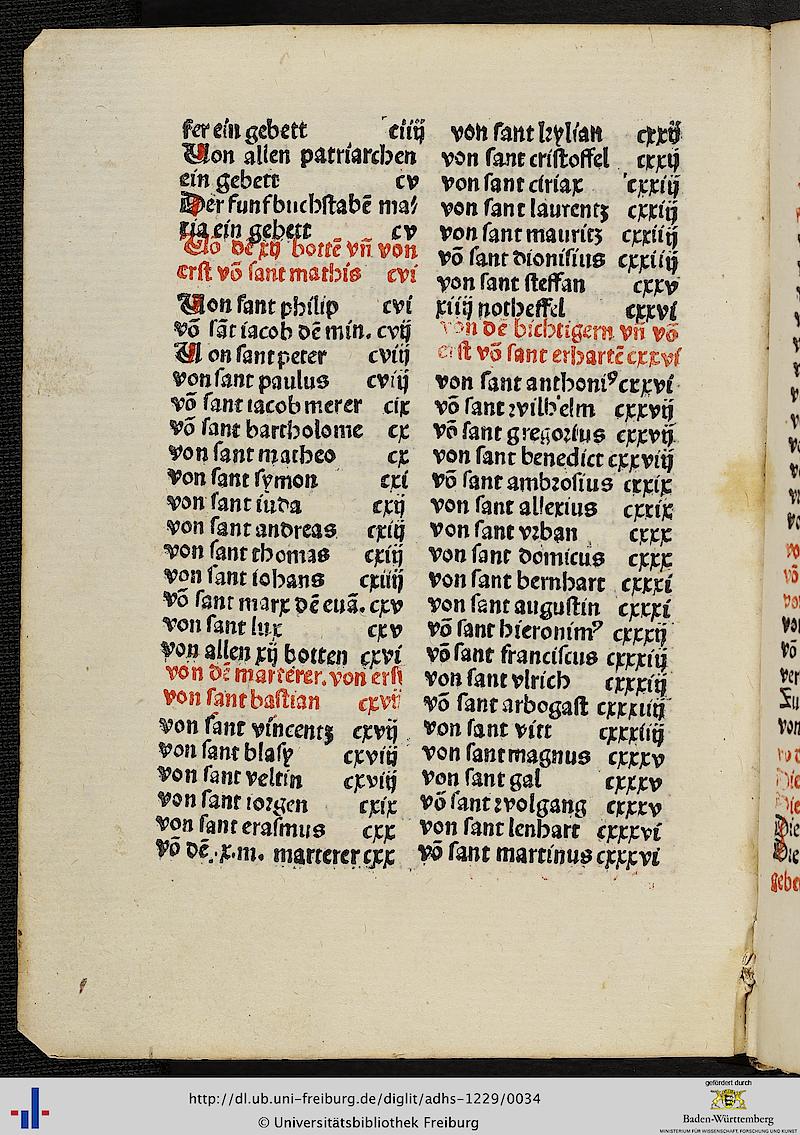 ser ein gebett ciiij
Von allen patriarchen
ein gebett cv
Der funf buchstabē ma⸗
ria ein gebett cv
Vo dē xij bottē vn̄ von
erst vō sant mathis cvi
Von sant philip cvi
vō sāt iacob dē min. cvij
Von sant peter cviij
von sant paulus cviij
vō sant iacob merer cix
vō sant bartholome cx
von sant matheo cx
von sant symon cxi
von sant iuda cxij
von sant andreas cxiij
von sant thomas cxiij
von sant iohans cxiiij
vō sant marx dē euā. cxv
von sant lux cxv
von allen xij botten cxvi
von dē marterer. von erst
von sant bastian cxvij
von sant vincentz cxvij
von sant blasy cxviij
von sant veltin cxviij
von sant iorgen cxix
von sant erasmus cxx
vō dē .x.m. marterer cxx
von sant kylian cxxij
von sant cristoffel cxxij
von sant ciriax cxxiij
von sant laurentz cxxiij
von sant mauritz cxxiiij
vō sant dionisius cxxiiij
von sant steffan cxxv
xiiij notheffel cxxvi
von dē bichtigern vn̄ vō
erst vō sant erhartē cxxvi
von sant anthoniꝰ cxxvi
vō sant wilhelm cxxvij
vō sant gregorius cxxvij
von sant benedict cxxviij
vō sant ambrosius cxxix
von sant allexius cxxix
von sant vrban cxxx
von sant domicus cxxx
von sant bernhart cxxxi
von sant augustin cxxxi
vō sant hieronimꝰ cxxxij
vō sant franciscus cxxxiij
von sant vlrich cxxxiij
vō sant arbogast cxxxiiij
von sant vitt cxxxiiij
von sant magnus cxxxv
von sant gal cxxxv
vō sant wolgang cxxxv
von sant lenhart cxxxvi
vō sant martinus cxxxvi
http://dl.ub.uni-freiburg.de/diglit/adhs-1229/0034
© Universitätsbibliothek Freiburg
gefördert durch
Baden-Württemberg
MINISTERIUM FÜR WISSENSCHAFT, FORSCHUNG UND KUNST